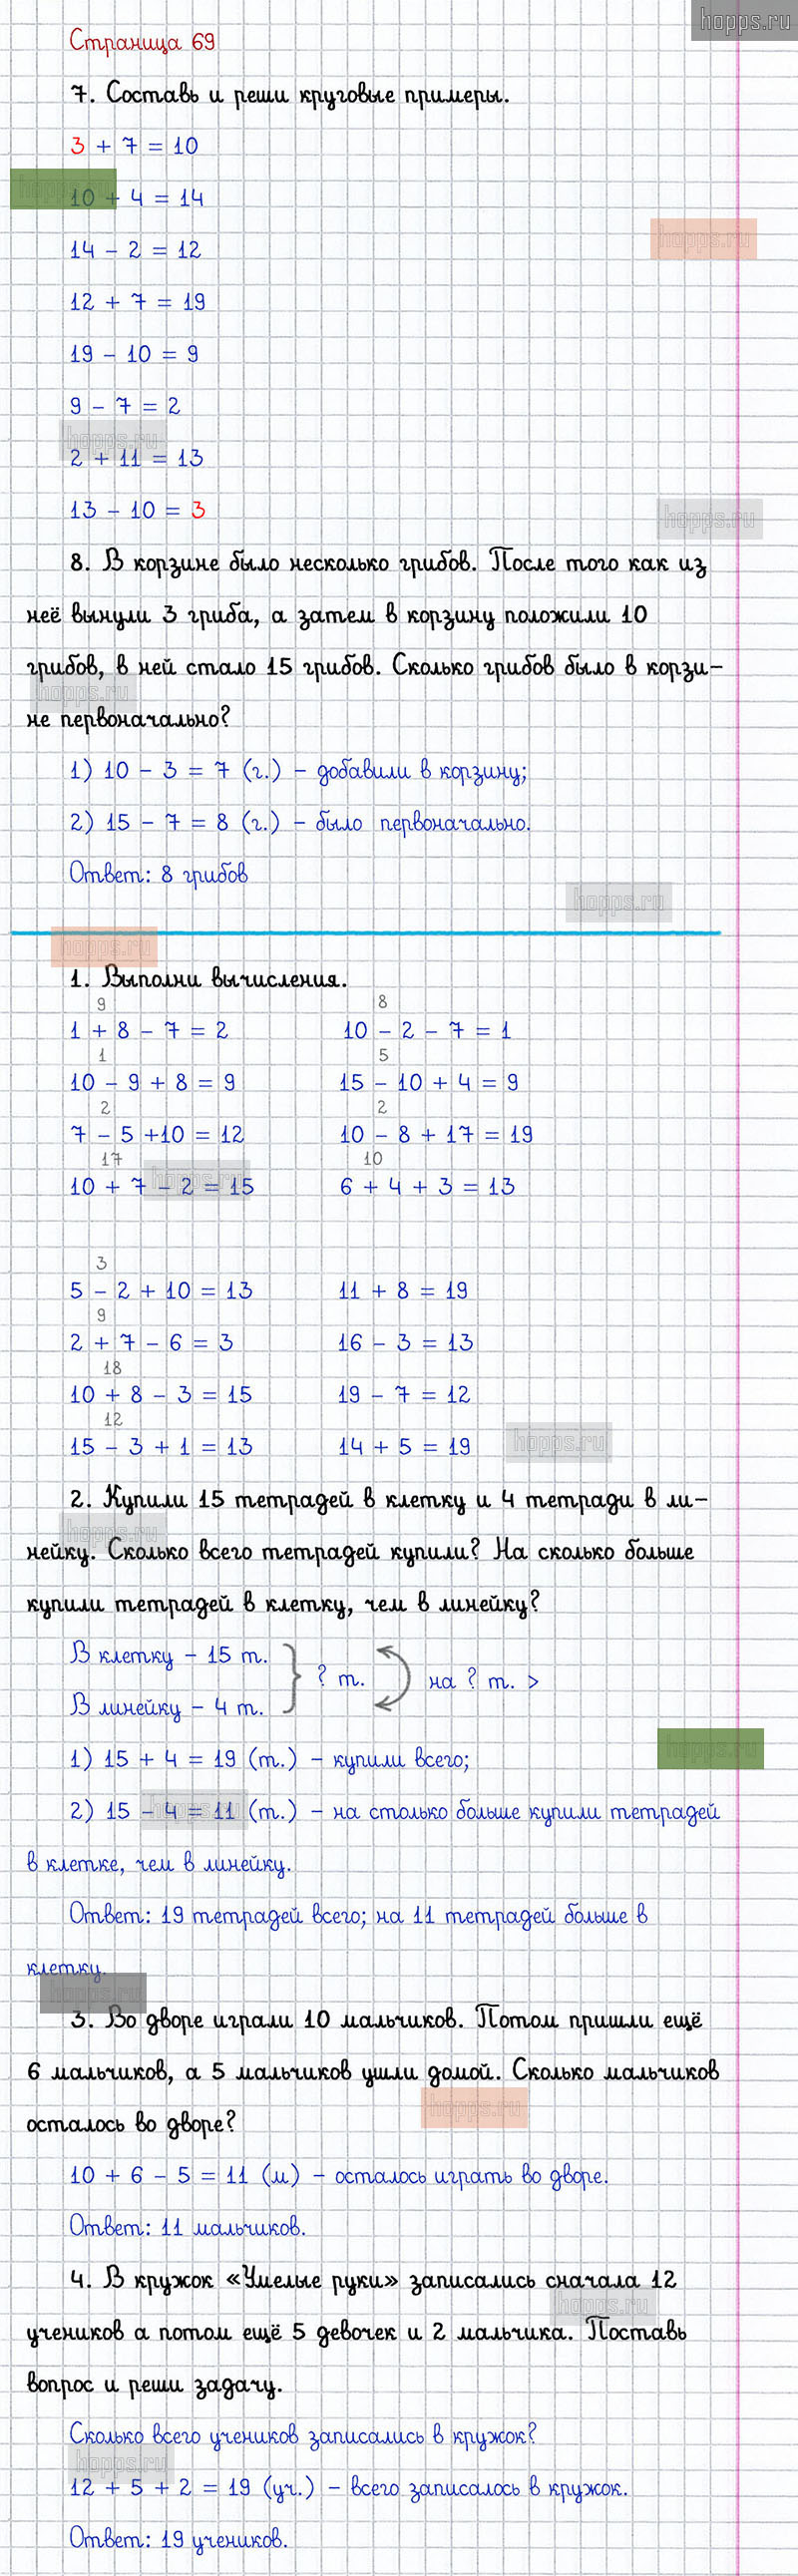 hopps.ru
Страница 69
7. Составь и реши круговые примеры.
3 + 7 = 10
hopps.ru
10 + 4 = 14
hopps.ru
14 - 2 = 12
12 + 7 = 19
19 - 10 = 9
9 - 7 = 2
hopps.ru
2 + 11 = 13
13 - 10 = 3
hopps.ru
8. В корзине было несколько грибов. После того как из
неё вынули 3 гриба, а затем в корзину положили 10
грибов, в ней стало 15 грибов. Сколько грибов было в корзи-
hopps.ru
не первоначально?
1) 10 - 3 = 7 (г.) - добавили в корзину;
2) 15 - 7 = 8 (г.) - было первоначально.
Ответ: 8 грибов
hopps.ru
hopps.ru
1. Выполни вычисления.
9 8
1 + 8 - 7 = 2 10 - 2 - 7 = 1
1 5
10 - 9 + 8 = 9 15 - 10 + 4 = 9
2 2
7 - 5 +10 = 12 10 - 8 + 17 = 19
17 10
10 + 7 - 2 = 15 6 + 4 + 3 = 13
hopps.ru
3
5 - 2 + 10 = 13 11 + 8 = 19
9
2 + 7 - 6 = 3 16 - 3 = 13
18
10 + 8 - 3 = 15 19 - 7 = 12
12
15 - 3 + 1 = 13 14 + 5 = 19
hopps.ru
2. Купили 15 тетрадей в клетку и 4 тетради в ли-
hopps.ru
нейку. Сколько всего тетрадей купили? На сколько больше
купили тетрадей в клетку, чем в линейку?
В клетку - 15 т.
? т. на ? т. >
В линейку - 4 т.
1) 15 + 4 = 19 (т.) - купили всего;
hopps.ru
2) 15 - 4 = 11 (т.) - на столько больше купили тетрадей
hopps.ru
в клетке, чем в линейку.
Ответ: 19 тетрадей всего; на 11 тетрадей больше в
клетку.
hopps.ru
3. Во дворе играли 10 мальчиков. Потом пришли ещё
6 мальчиков, а 5 мальчиков ушли домой. Сколько мальчиков
hopps.ru
осталось во дворе?
10 + 6 - 5 = 11 (м) - осталось играть во дворе.
Ответ: 11 мальчиков.
4. В кружок «Умелые руки» записались сначала 12
hopps.ru
учеников а потом ещё 5 девочек и 2 мальчика. Поставь
вопрос и реши задачу.
Сколько всего учеников записались в кружок?
hopps.ru
12 + 5 + 2 = 19 (уч.) - всего записалось в кружок.
Ответ: 19 учеников.